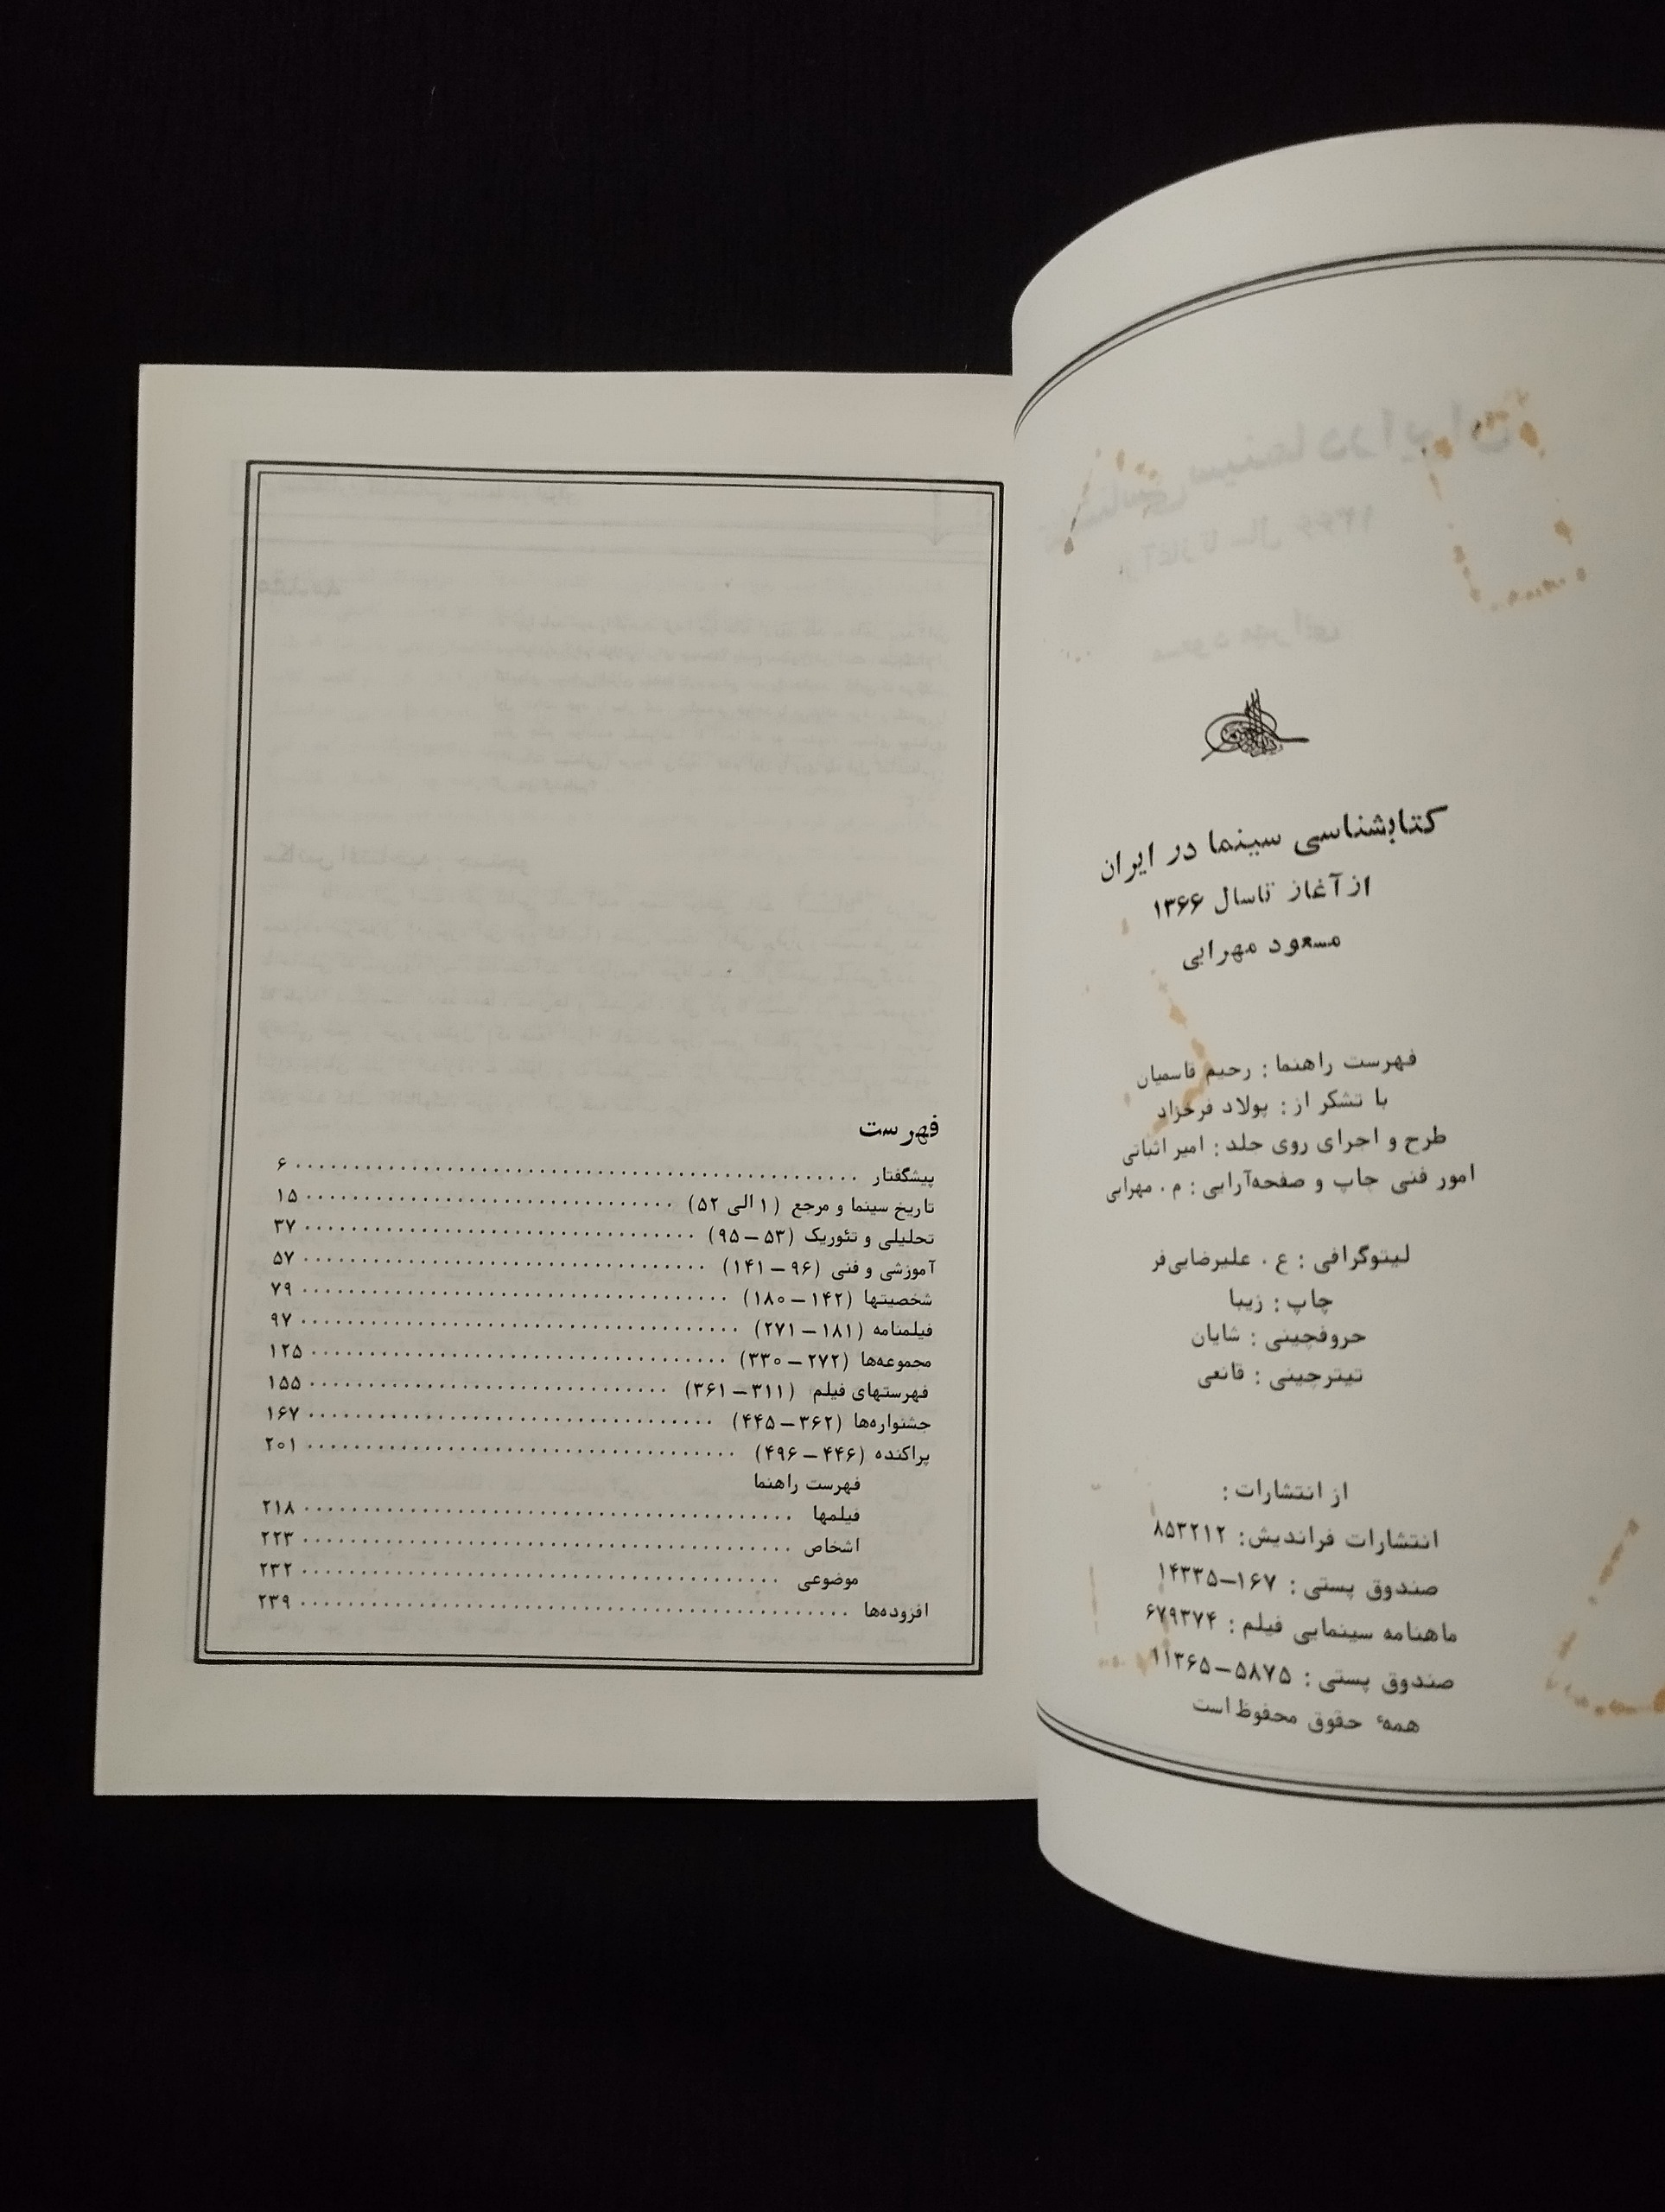 کتابشناسی سینما در ایران
از آغاز تا سال ۱۳۶۶
مسعود مهرابی
فهرست راهنما : رحیم قاسمیان
با تشکر از : پولاد فرخزاد
طرح و اجرای روی جلد : امیر اثباتی
امور فنی چاپ و صفحه‌آرایی : م . مهرابی
لیتوگرافی : ع . علیرضایی‌فر
چاپ : زیبا
حروفچینی : شایان
تیترچینی : قانعی
از انتشارات :
انتشارات فراندیش : ۸۵۳۲۱۲
صندوق پستی : ۱۶۷–۱۴۳۳۵
ماهنامه سینمایی فیلم : ۶۷۹۳۷۴
صندوق پستی : ۵۸۷۵–۱۱۳۶۵
همهٔ حقوق محفوظ است
فهرست
پیشگفتار ........ ۶
تاریخ سینما و مرجع (۱ الی ۵۲) ........ ۱۵
تحلیلی و تئوریک (۵۳–۹۵) ........ ۳۷
آموزشی و فنی (۹۶–۱۴۱) ........ ۵۷
شخصیتها (۱۴۲–۱۸۰) ........ ۷۹
فیلمنامه (۱۸۱–۲۷۱) ........ ۹۷
مجموعه‌ها (۲۷۲–۳۳۰) ........ ۱۲۵
فهرستهای فیلم (۳۱۱–۳۶۱) ........ ۱۵۵
جشنواره‌ها (۳۶۲–۴۴۵) ........ ۱۶۷
پراکنده (۴۴۶–۴۹۶) ........ ۲۰۱
فهرست راهنما
فیلمها ........ ۲۱۸
اشخاص ........ ۲۲۳
موضوعی ........ ۲۳۲
افزوده‌ها ........ ۲۳۹